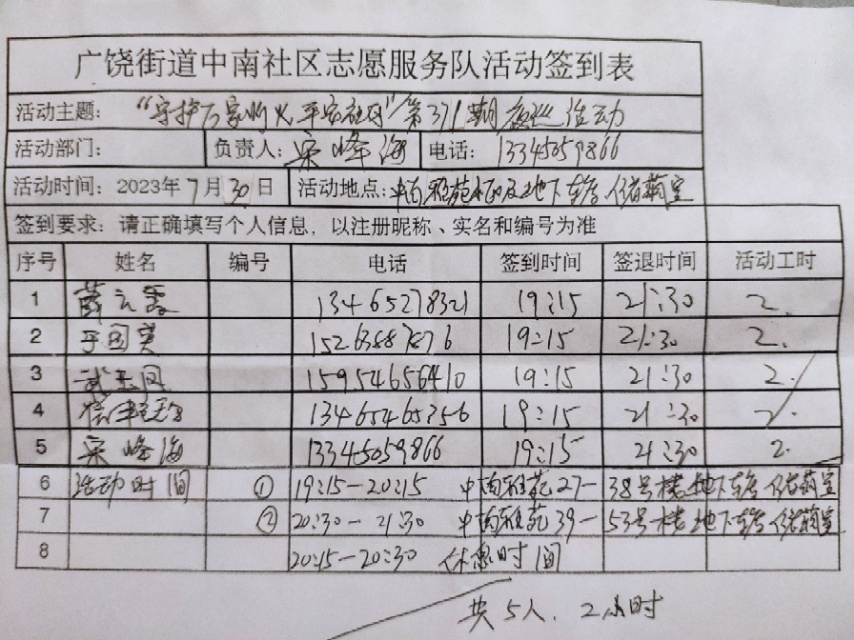 广饶街道中南社区志愿服务队活动签到表
活动主题: "守护万家灯火 平安社区"第371期夜巡活动
活动部门: 负责人: 宋峰海 电话: 13345059866
活动时间: 2023年7月30日 活动地点: 中南雅苑 及地下车库储藏室
签到要求: 请正确填写个人信息, 以注册昵称、实名和编号为准
序号 姓名 编号 电话 签到时间 签退时间 活动工时
1 薛云霞 13465278321 19:15 21:30 2.
2 于国英 19:15 21:30 2.
3 武玉凤 15954656410 19:15 21:30 2.
4 19:15 21:30 2.
5 宋峰海 13345059866 19:15 21:30 2.
6 活动时间 ① 19:15-20:15 中南雅苑27-38号楼地下车库储藏室
7 ② 20:30-21:30 中南雅苑39-53号楼地下车库储藏室
8 20:15-20:30 休息时间
共5人. 2小时